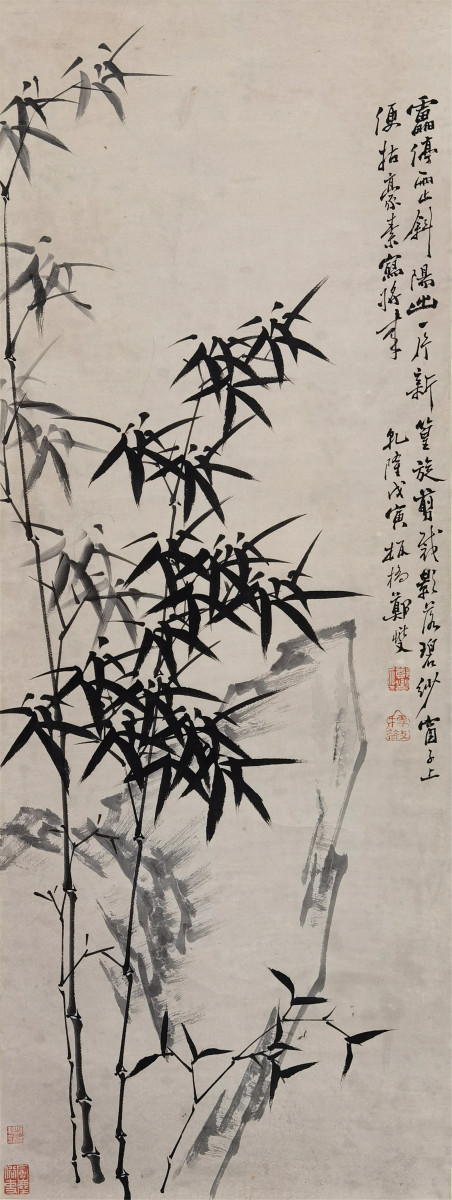 雷停雨止斜陽出一片新篁旋剪裁影落碧紗窗子上
便拈毫素寫將來
乾隆戊寅板橋鄭燮